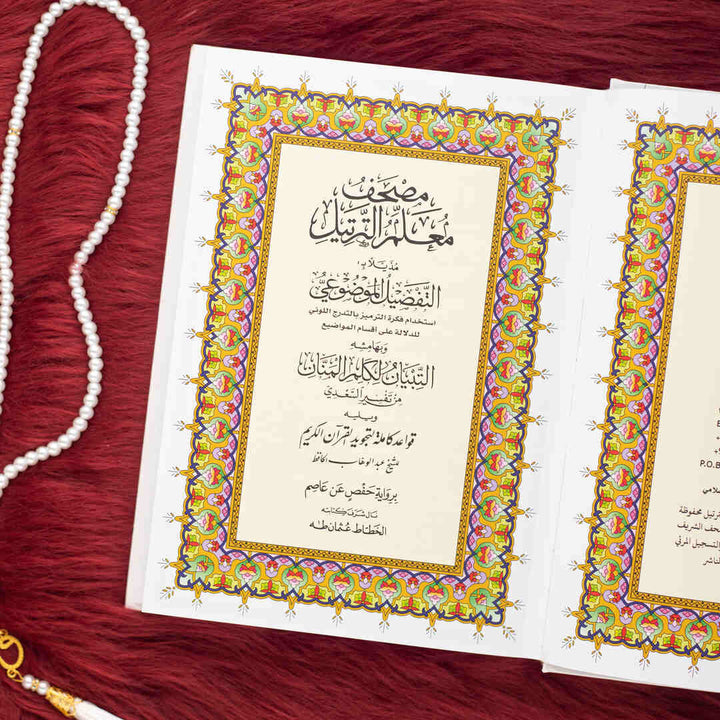 مصحف
معلم الترتيل
مذيلا بـ:
التفصيل الموضوعي
استخدام فكرة الترميز بالتدرج اللوني
للدلالة على أقسام المواضيع
وبهامشه
التبيان لكلم المنان
من تفسير السعدي
ويليه
قواعد كاملة لتجويد القرآن الكريم
للشيخ عبد الوهاب الحافظ
برواية حفص عن عاصم
نال شرف كتابته
الخطاط عثمان طه
P.O.B
ترتيل محفوظة
التسجيل المرئي